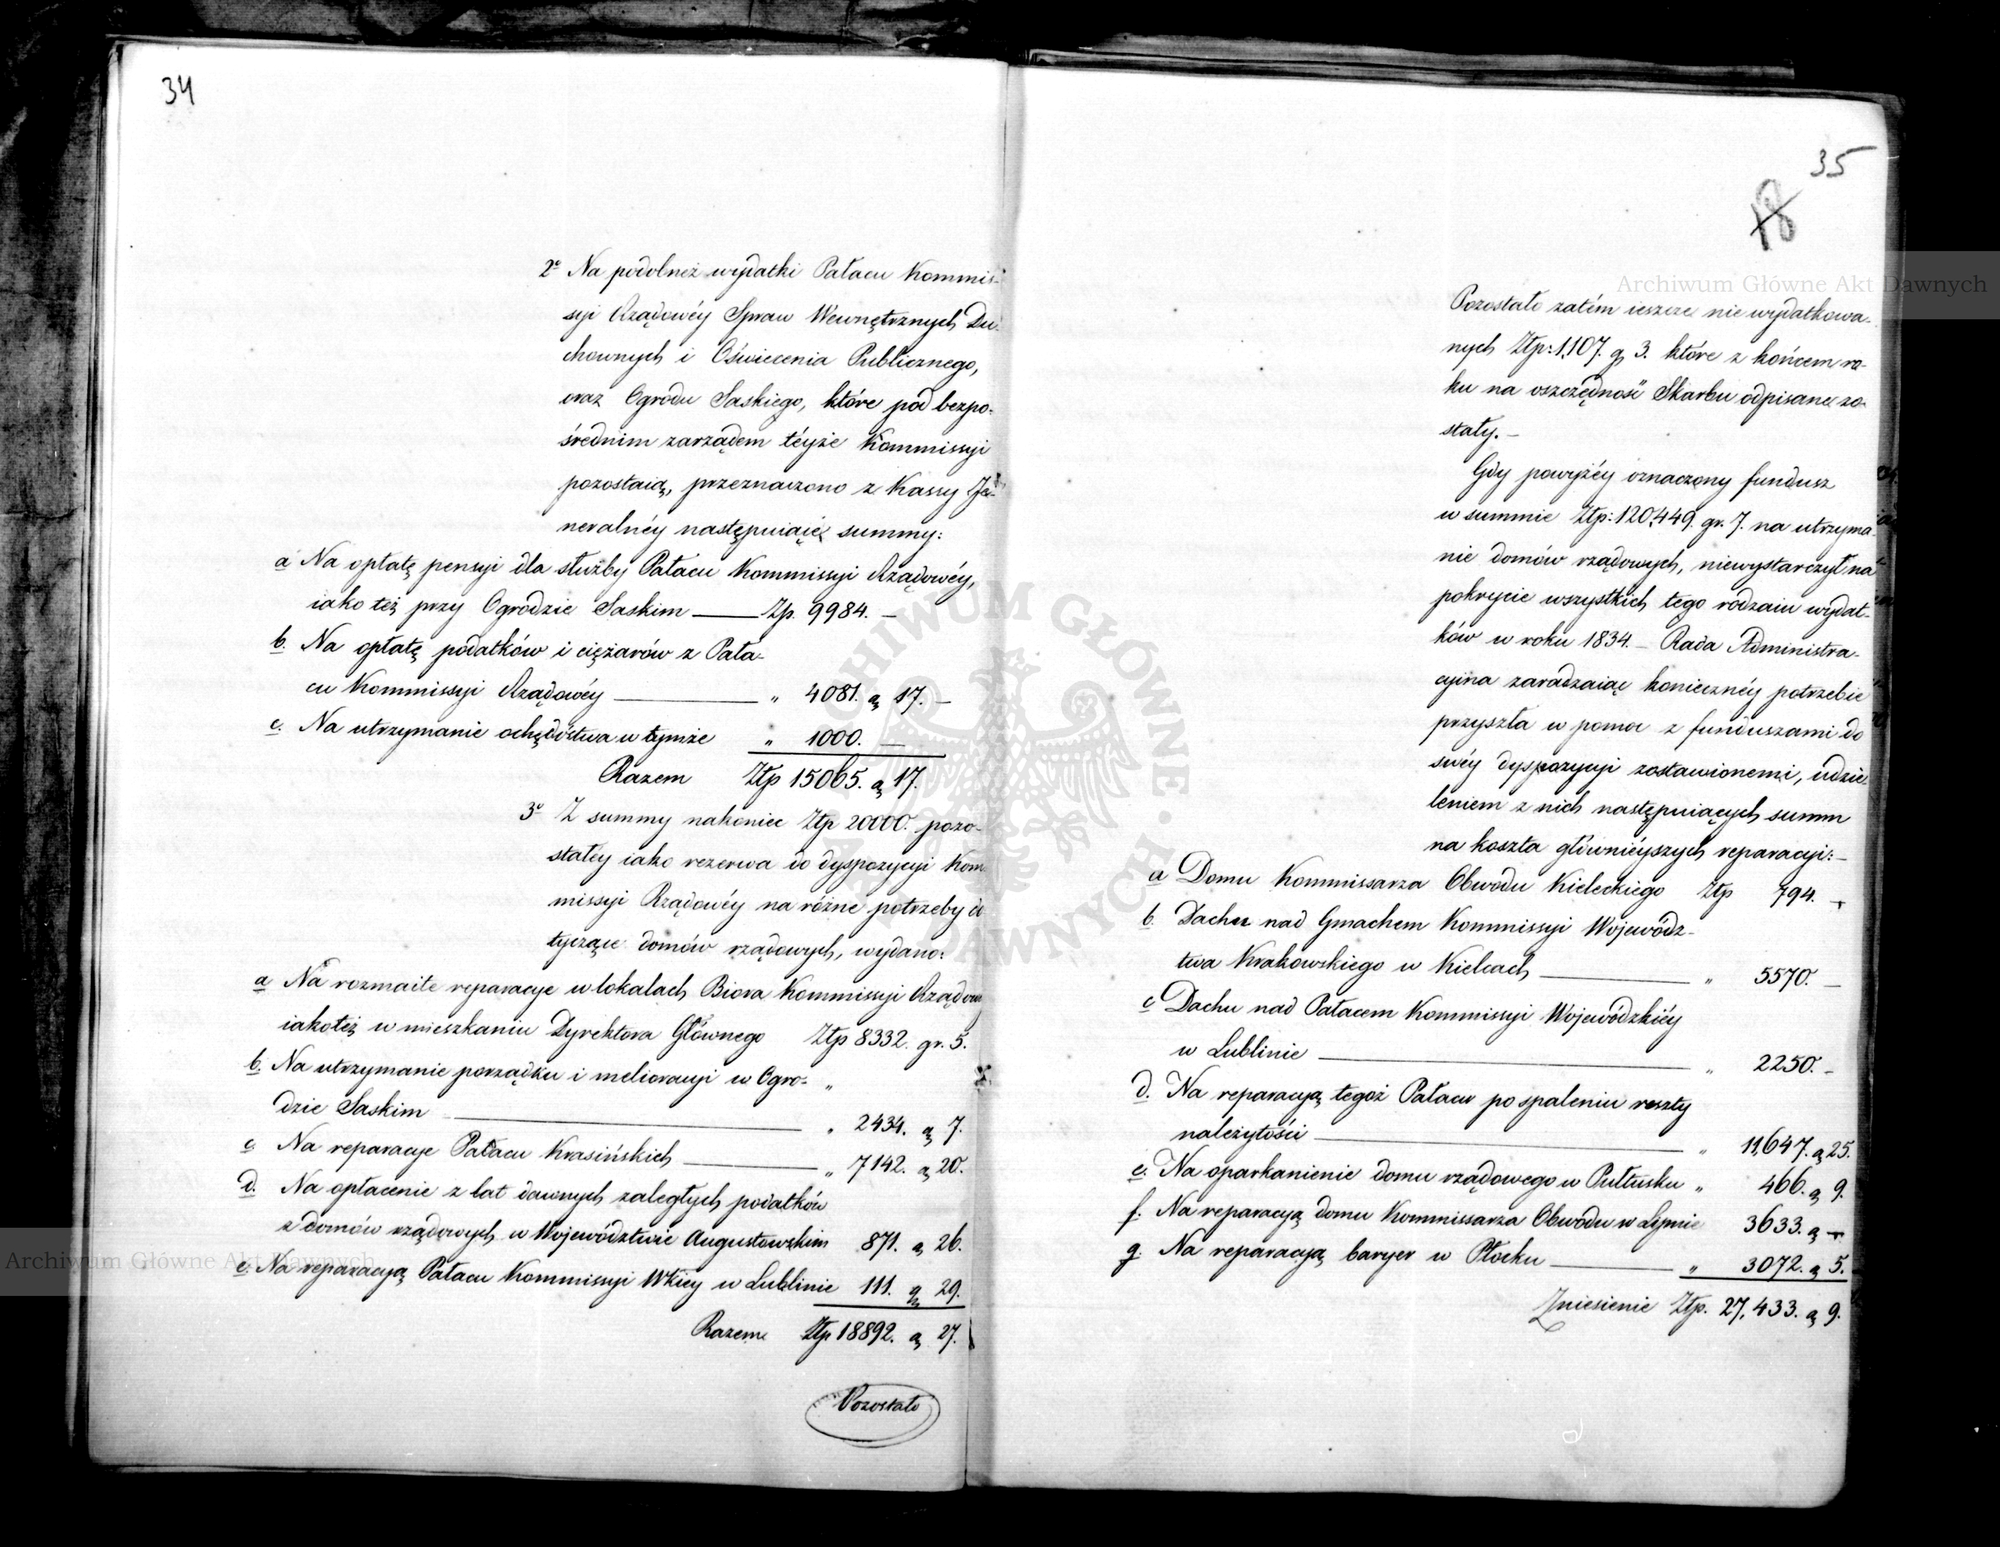 34
2º Na podobnież wydatki Pałacu Kommis-
syi Rządowéy Spraw Wewnętrznych Du-
chownych i Oświecenia Publicznego,
oraz Ogrodu Saskiego, które pod bezpo-
średnim zarządem téyże Kommissyi
pozostaią, przeznaczono z Kassy Je-
neralnéy następuiące summy:
a Na opłatę pensyi dla służby Pałacu Kommissyi Rządowéy,
iako też przy Ogrodzie Saskim — Zp. 9984. —
b. Na opłatę podatków i ciężarów z Pała-
cu Kommissyi Rządowéy — „ 4081. g 17. —
c. Na utrzymanie ochędóstwa w tymże „ 1000. —
Razem Złp 15065. g 17.
3º Z summy nakoniec Złp 20000. pozo-
stałey iako rezerwa do dyspozycyi Kom-
missyi Rządowéy na różne potrzeby do
tyczące domów rządowych, wydano:
a Na rozmaite reparacye w lokalach Biora Kommissyi Rządow
iakoteż w mieszkaniu Dyrektora Głównego Złp 8332. gr. 5.
b. Na utrzymanie porządku i melioracyi w Ogro- „
dzie Saskim — „ 2434. g 7.
c Na reparacye Pałacu Krasińskich — „ 7142. g 20.
d. Na opłacenie z lat dawnych zaległych podatków
z domów rządowych w Województwie Augustowskim 871. g 26.
e. Na reparacyą Pałacu Kommissyi Wkiey w Lublinie 111. g 29.
Razem Złp 18892. g 27.
Pozostało
35
18
Pozostało zatém ieszcze nie wydatkowa-
nych Złp: 1,107. g 3. które z końcem ro-
ku na oszczędność Skarbu odpisane zo-
stały. —
Gdy powyżéy oznaczony fundusz
w summie Złp: 120,449. gr. 7. na utrzyma-
nie domów rządowych, niewystarczył na
pokrycie wszystkich tego rodzaiu wydat-
ków w roku 1834. — Rada Administra-
cyina zaradzaiąc konieczney potrzebie
przyszła w pomoc z funduszami do
swéy dyspozycyi zostawionemi, udzie-
leniem z nich następuiących summ
na koszta główniéyszych reparacyi: —
a Domu Kommissarza Obwodu Kieleckiego Złp 794. —
b. Dachu nad Gmachem Kommissyi Wojewódz-
twa Krakowskiego w Kielcach — „ 5570. —
c Dachu nad Pałacem Kommissyi Wojewódzkiéy
w Lublinie — „ 2250. —
d. Na reparacyą tegoż Pałacu po spaleniu reszty
należytości — „ 11,647. g 25.
e. Na oparkanienie domu rządowego w Pułtusku „ 466. g 9.
f. Na reparacyą domu Kommissarza Obwodu w Lipnie 3633. g —
g. Na reparacyą baryer w Płocku — „ 3072. g 5.
Zniesienie Złp. 27,433. g 9.
Archiwum Główne Akt Dawnych
Archiwum Główne Akt Dawnych
ARCHIWUM GŁÓWNE AKT DAWNYCH